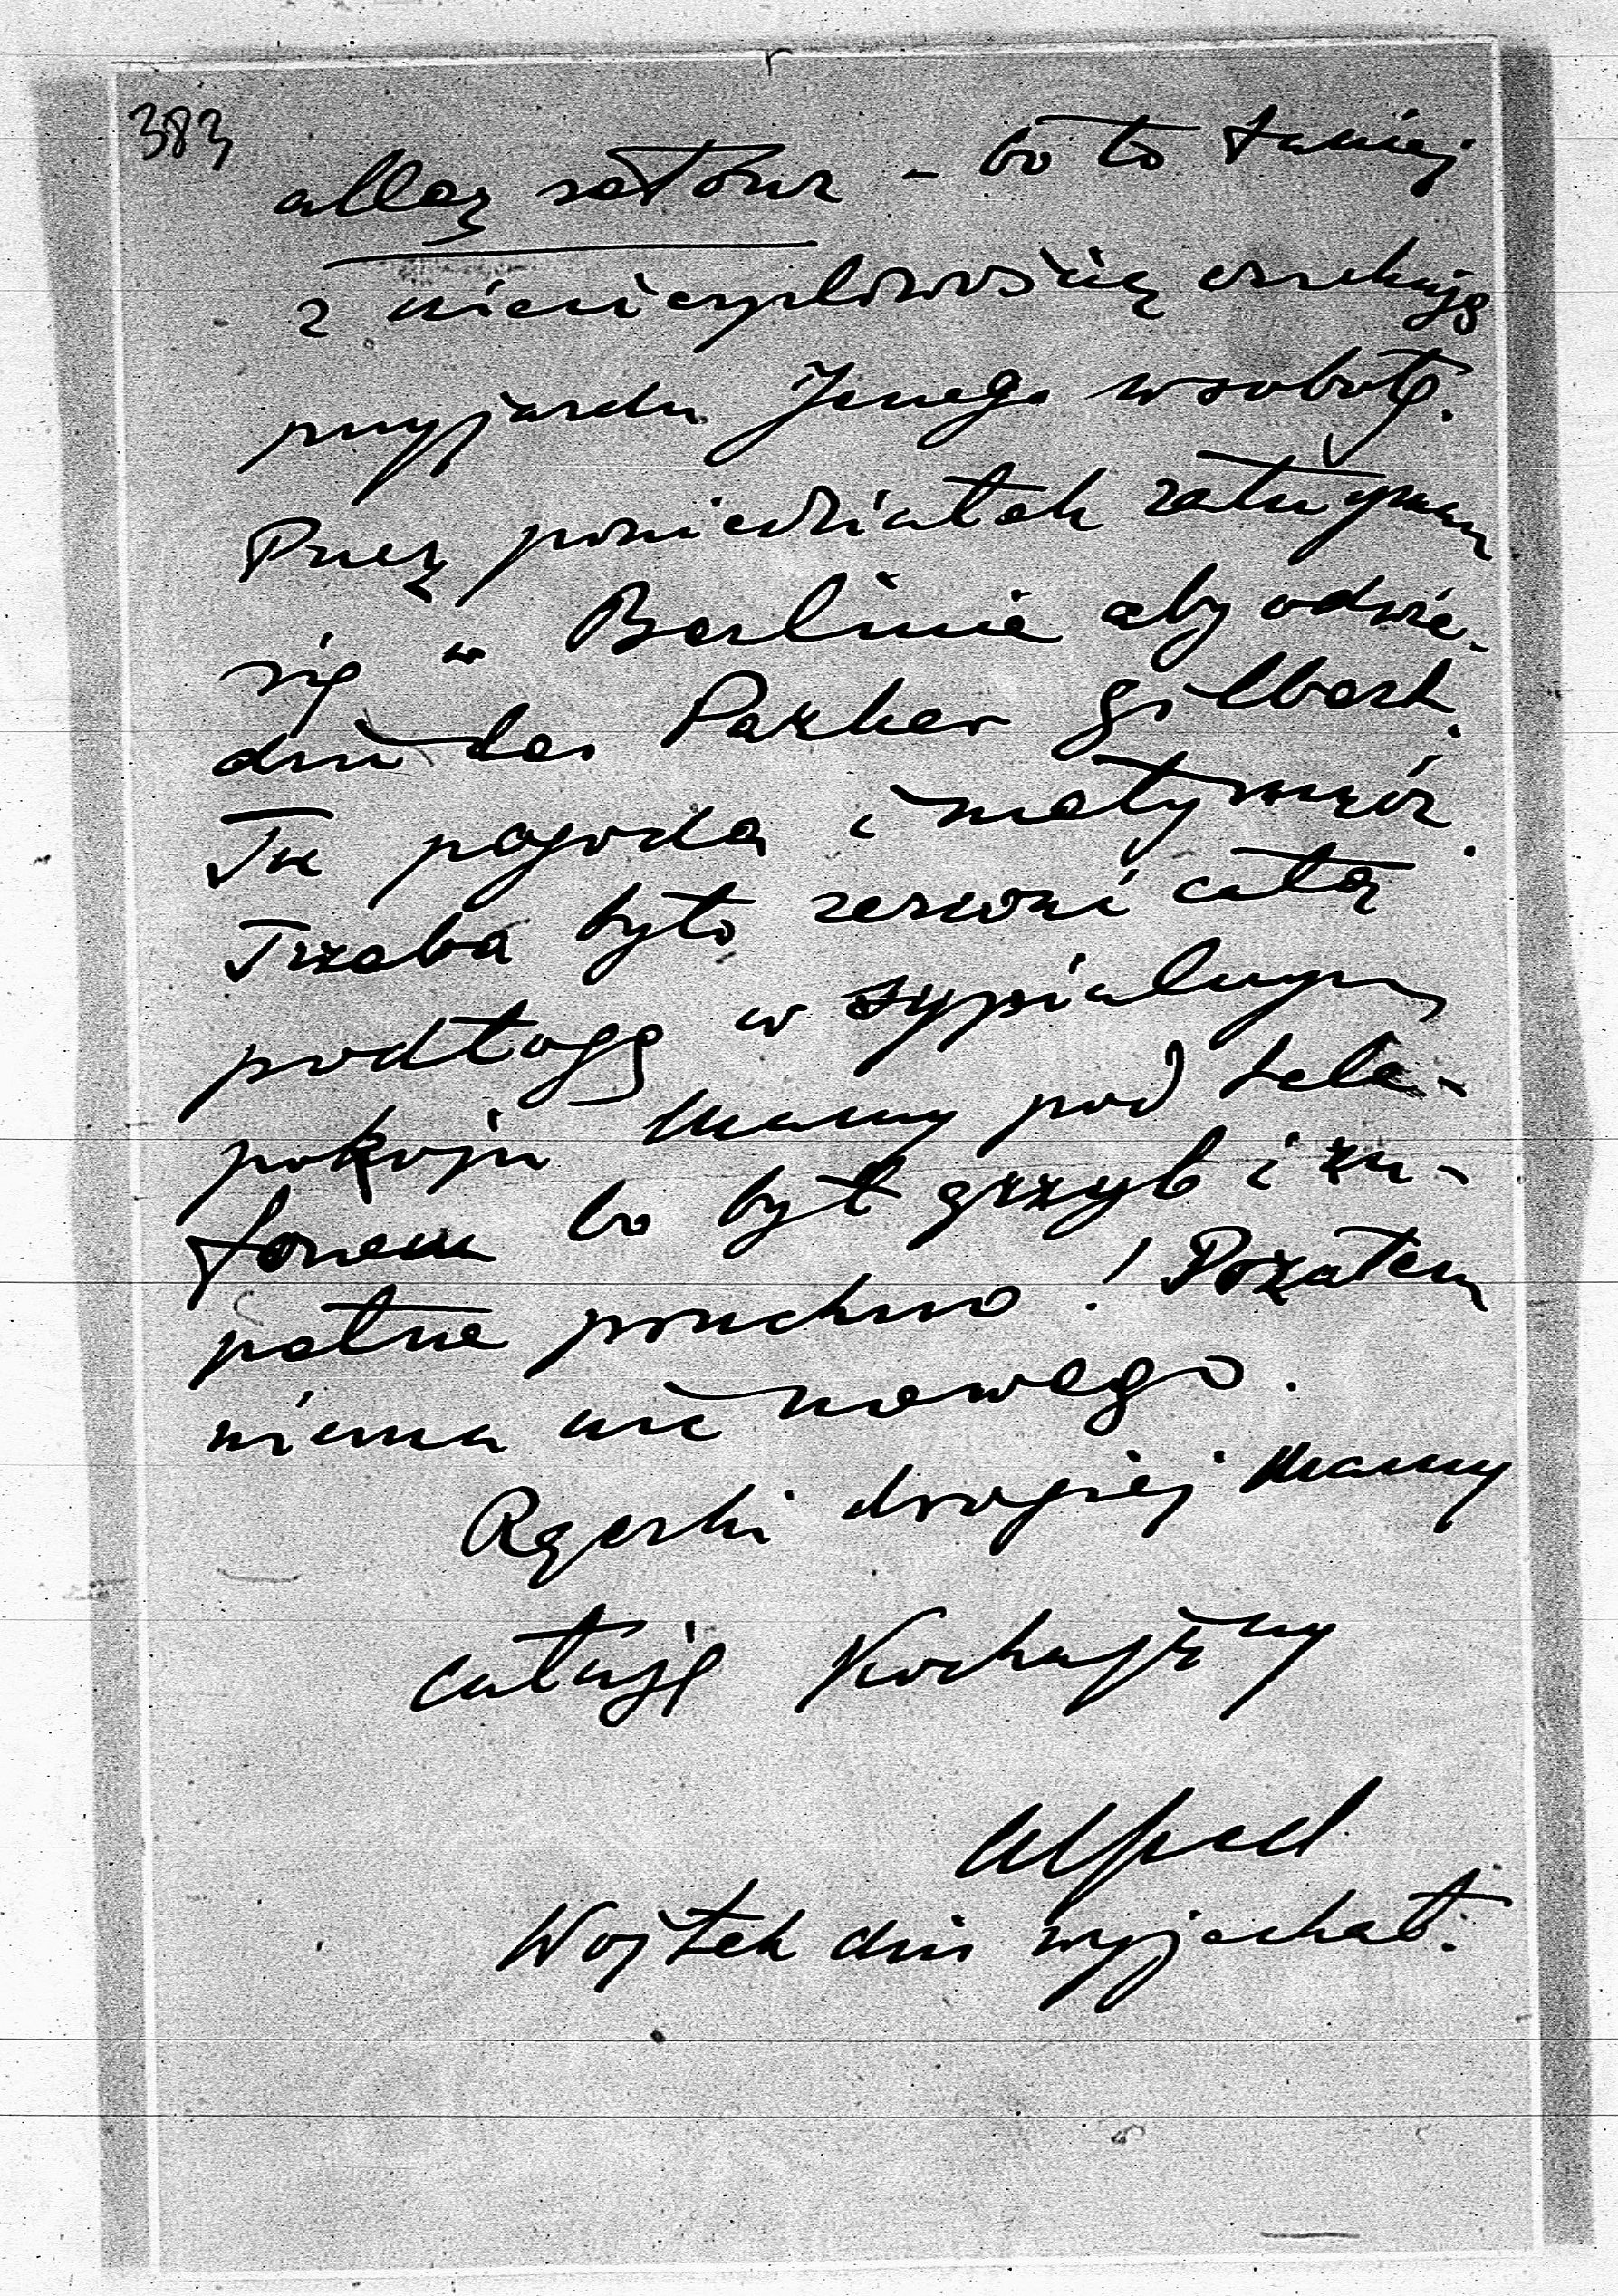 383
allez retour – bo to taniej
z niecierpliwością oczekuję
przyjazdu Junego w sobotę.
Przez poniedziałek zatrzymam
się w Berlinie aby odwie-
Parker Gilbert.
Tu pogoda i mały mróz.
Trzeba było zerwać całą
podłogę w sypialnym
pokoju Mamy pod tele-
fonem bo był grzyb i zu-
pełne próchno! Pozatem
niema nic nowego.
Rączki drogiej Mamy
całuję Kochający
Alfred
Wojtek dziś wyjechał.